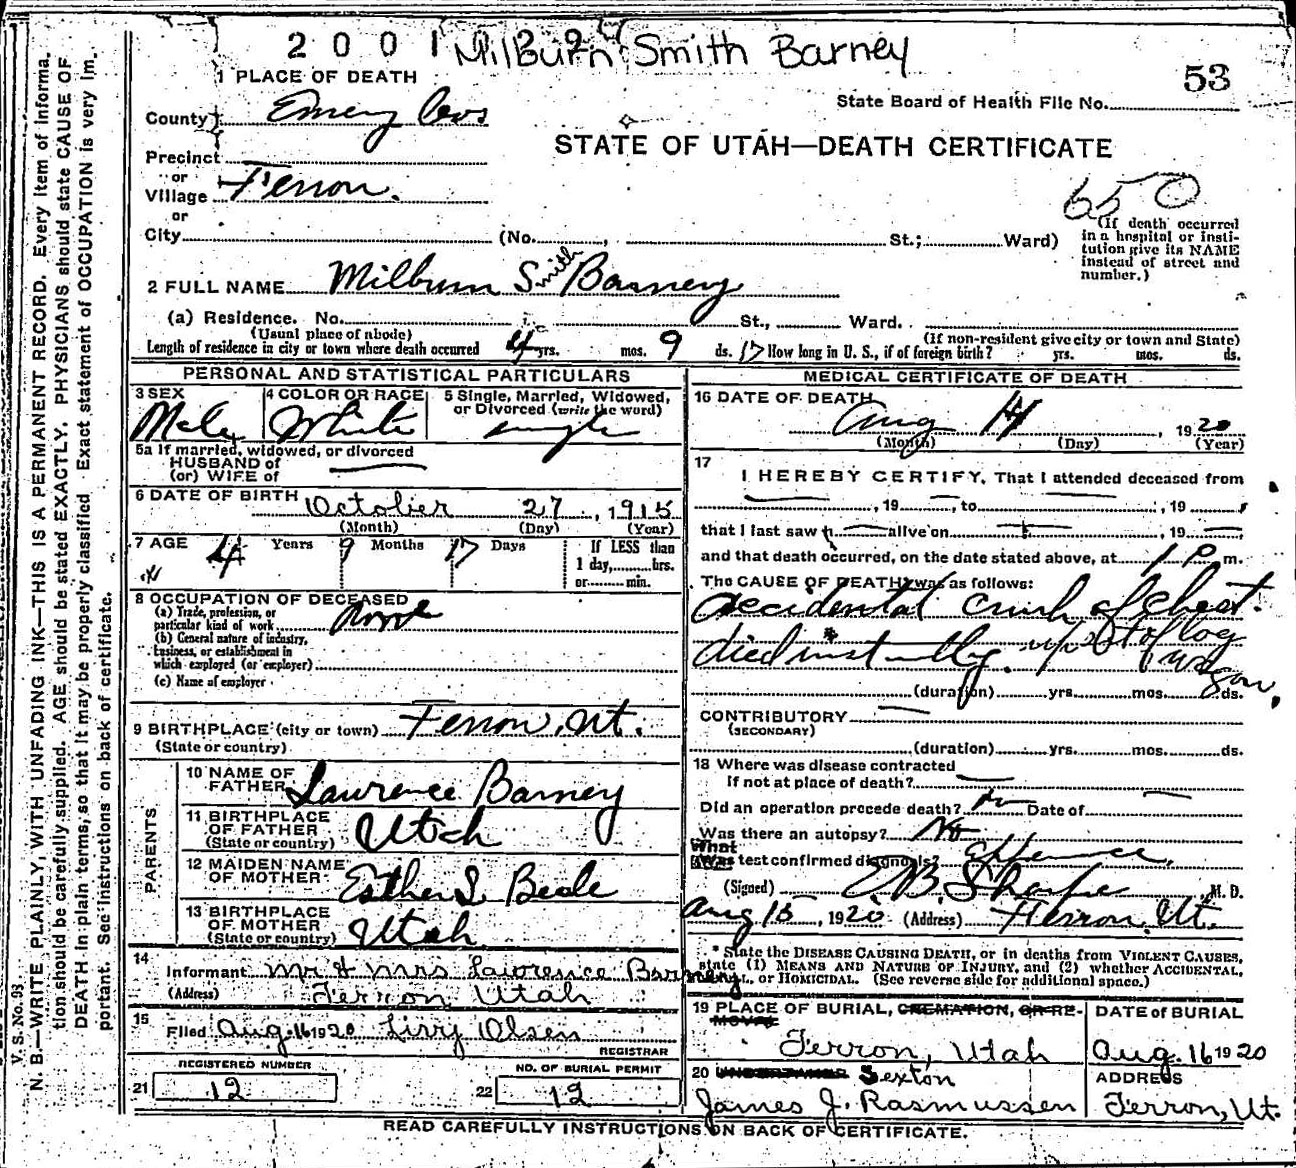 Milburn Smith Barney
53
1 PLACE OF DEATH
State Board of Health File No.
County Emery
STATE OF UTAH—DEATH CERTIFICATE
Precinct
or
Village Ferron.
650
or
City (No. , St.; Ward)
(If death occurred in a hospital or institution give its NAME instead of street and number.)
2 FULL NAME Milburn Smith Barney
(a) Residence. No. St., Ward.
(Usual place of abode) (If non-resident give city or town and State)
Length of residence in city or town where death occurred 4 yrs. mos. 9 ds. 17 How long in U. S., if of foreign birth? yrs. mos. ds.
PERSONAL AND STATISTICAL PARTICULARS
3 SEX Male
4 COLOR OR RACE White
5 Single, Married, Widowed, or Divorced (write the word) single
5a If married, widowed, or divorced
HUSBAND of
(or) WIFE of
6 DATE OF BIRTH October 27, 1915
(Month) (Day) (Year)
7 AGE 4 Years 9 Months 17 Days
If LESS than 1 day, hrs. or min.
8 OCCUPATION OF DECEASED
(a) Trade, profession, or particular kind of work none
(b) General nature of industry, business, or establishment in which employed (or employer)
(c) Name of employer
9 BIRTHPLACE (city or town) Ferron, Ut.
(State or country)
PARENTS
10 NAME OF FATHER Lawrence Barney
11 BIRTHPLACE OF FATHER (State or country) Utah
12 MAIDEN NAME OF MOTHER Esther S. Beale
13 BIRTHPLACE OF MOTHER (State or country) Utah
14 Informant Mr & Mrs Lawrence Barney
(Address) Ferron Utah
15 Filed Aug. 16 1920 Lizzy Olsen
REGISTRAR
REGISTERED NUMBER
21 12
NO. OF BURIAL PERMIT
22 12
MEDICAL CERTIFICATE OF DEATH
16 DATE OF DEATH Aug 14, 1920
(Month) (Day) (Year)
17 I HEREBY CERTIFY, That I attended deceased from
, 19 , to , 19
that I last saw h alive on , 19
and that death occurred, on the date stated above, at 1 P m.
The CAUSE OF DEATH* was as follows:
accidental crush of chest.
died instantly. upset of log wagon.
(duration) yrs. mos. ds.
CONTRIBUTORY
(SECONDARY)
(duration) yrs. mos. ds.
18 Where was disease contracted
If not at place of death?
Did an operation precede death? no Date of
Was there an autopsy? No
What test confirmed diagnosis?
(Signed) E. B. Sharpe M. D.
Aug 15, 1920 (Address) Ferron, Ut.
* State the DISEASE CAUSING DEATH, or in deaths from VIOLENT CAUSES, state (1) MEANS AND NATURE OF INJURY, and (2) whether ACCIDENTAL, SUICIDAL, or HOMICIDAL. (See reverse side for additional space.)
19 PLACE OF BURIAL, CREMATION, OR REMOVAL DATE of BURIAL
Ferron, Utah Aug. 16 1920
20 UNDERTAKER Sexton ADDRESS
James J. Rasmussen Ferron, Ut.
READ CAREFULLY INSTRUCTIONS ON BACK OF CERTIFICATE.
V. S. No. 93
N. B.—WRITE PLAINLY, WITH UNFADING INK—THIS IS A PERMANENT RECORD. Every item of information should be carefully supplied. AGE should be stated EXACTLY. PHYSICIANS should state CAUSE OF DEATH in plain terms, so that it may be properly classified. Exact statement of OCCUPATION is very important. See instructions on back of certificate.